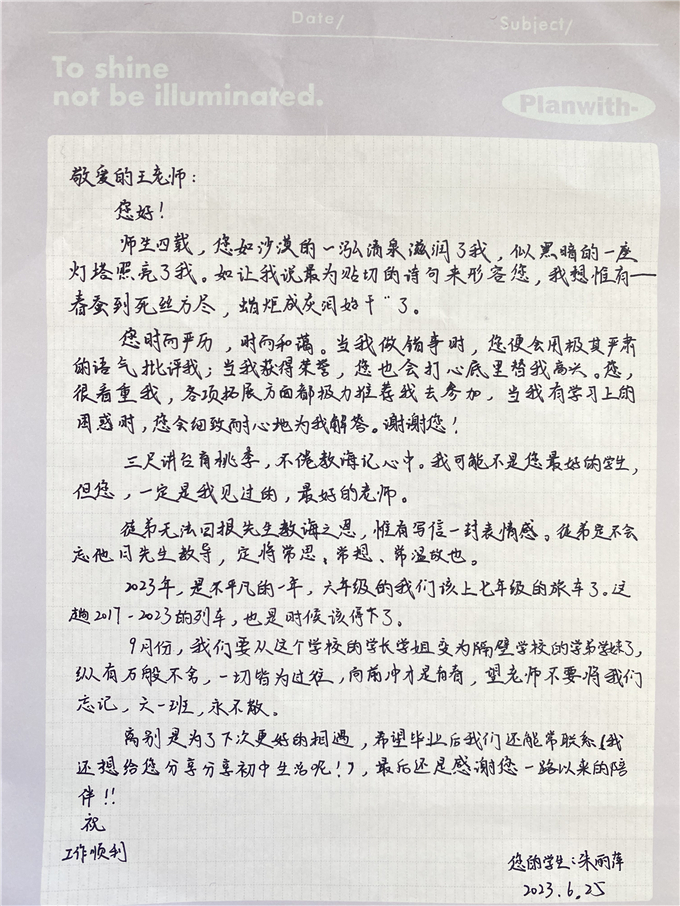 Date/ Subject/
To shine
not be illuminated.
Planwith-
敬爱的王老师：
您好！
师生四载，您如沙漠的一泓清泉滋润了我，似黑暗的一座
灯塔照亮了我。如让我说最为贴切的诗句来形容您，我想惟有——
春蚕到死丝方尽，蜡炬成灰泪始干"了。
您时而严厉，时而和蔼。当我做错事时，您便会用极其严肃
的语气批评我；当我获得荣誉，您也会打心底里替我高兴。您，
很看重我，各项拓展方面都极力推荐我去参加，当我有学习上的
困惑时，您会细致耐心地为我解答。谢谢您！
三尺讲台育桃李，不倦教诲记心中。我可能不是您最好的学生，
但您，一定是我见过的，最好的老师。
徒弟无法回报先生教诲之恩，惟有写信一封表情感。徒弟定不会
忘他日先生教导，定将常思、常想、常温故也。
2023年，是不平凡的一年，六年级的我们该上七年级的旅车了。这
趟2017-2023的列车，也是时候该停下了。
9月份，我们要从这个学校的学长学姐变为隔壁学校的学弟学妹了，
纵有万般不舍，一切皆为过往，向前冲才是有，望老师不要将我们
忘记，六一班，永不散。
离别是为了下次更好的相遇，希望毕业后我们还能常联系（我
还想给您分享分享初中生活呢！），最后还是感谢您一路以来的陪
伴！！
祝
工作顺利
您的学生：朱丽萍
2023.6.25